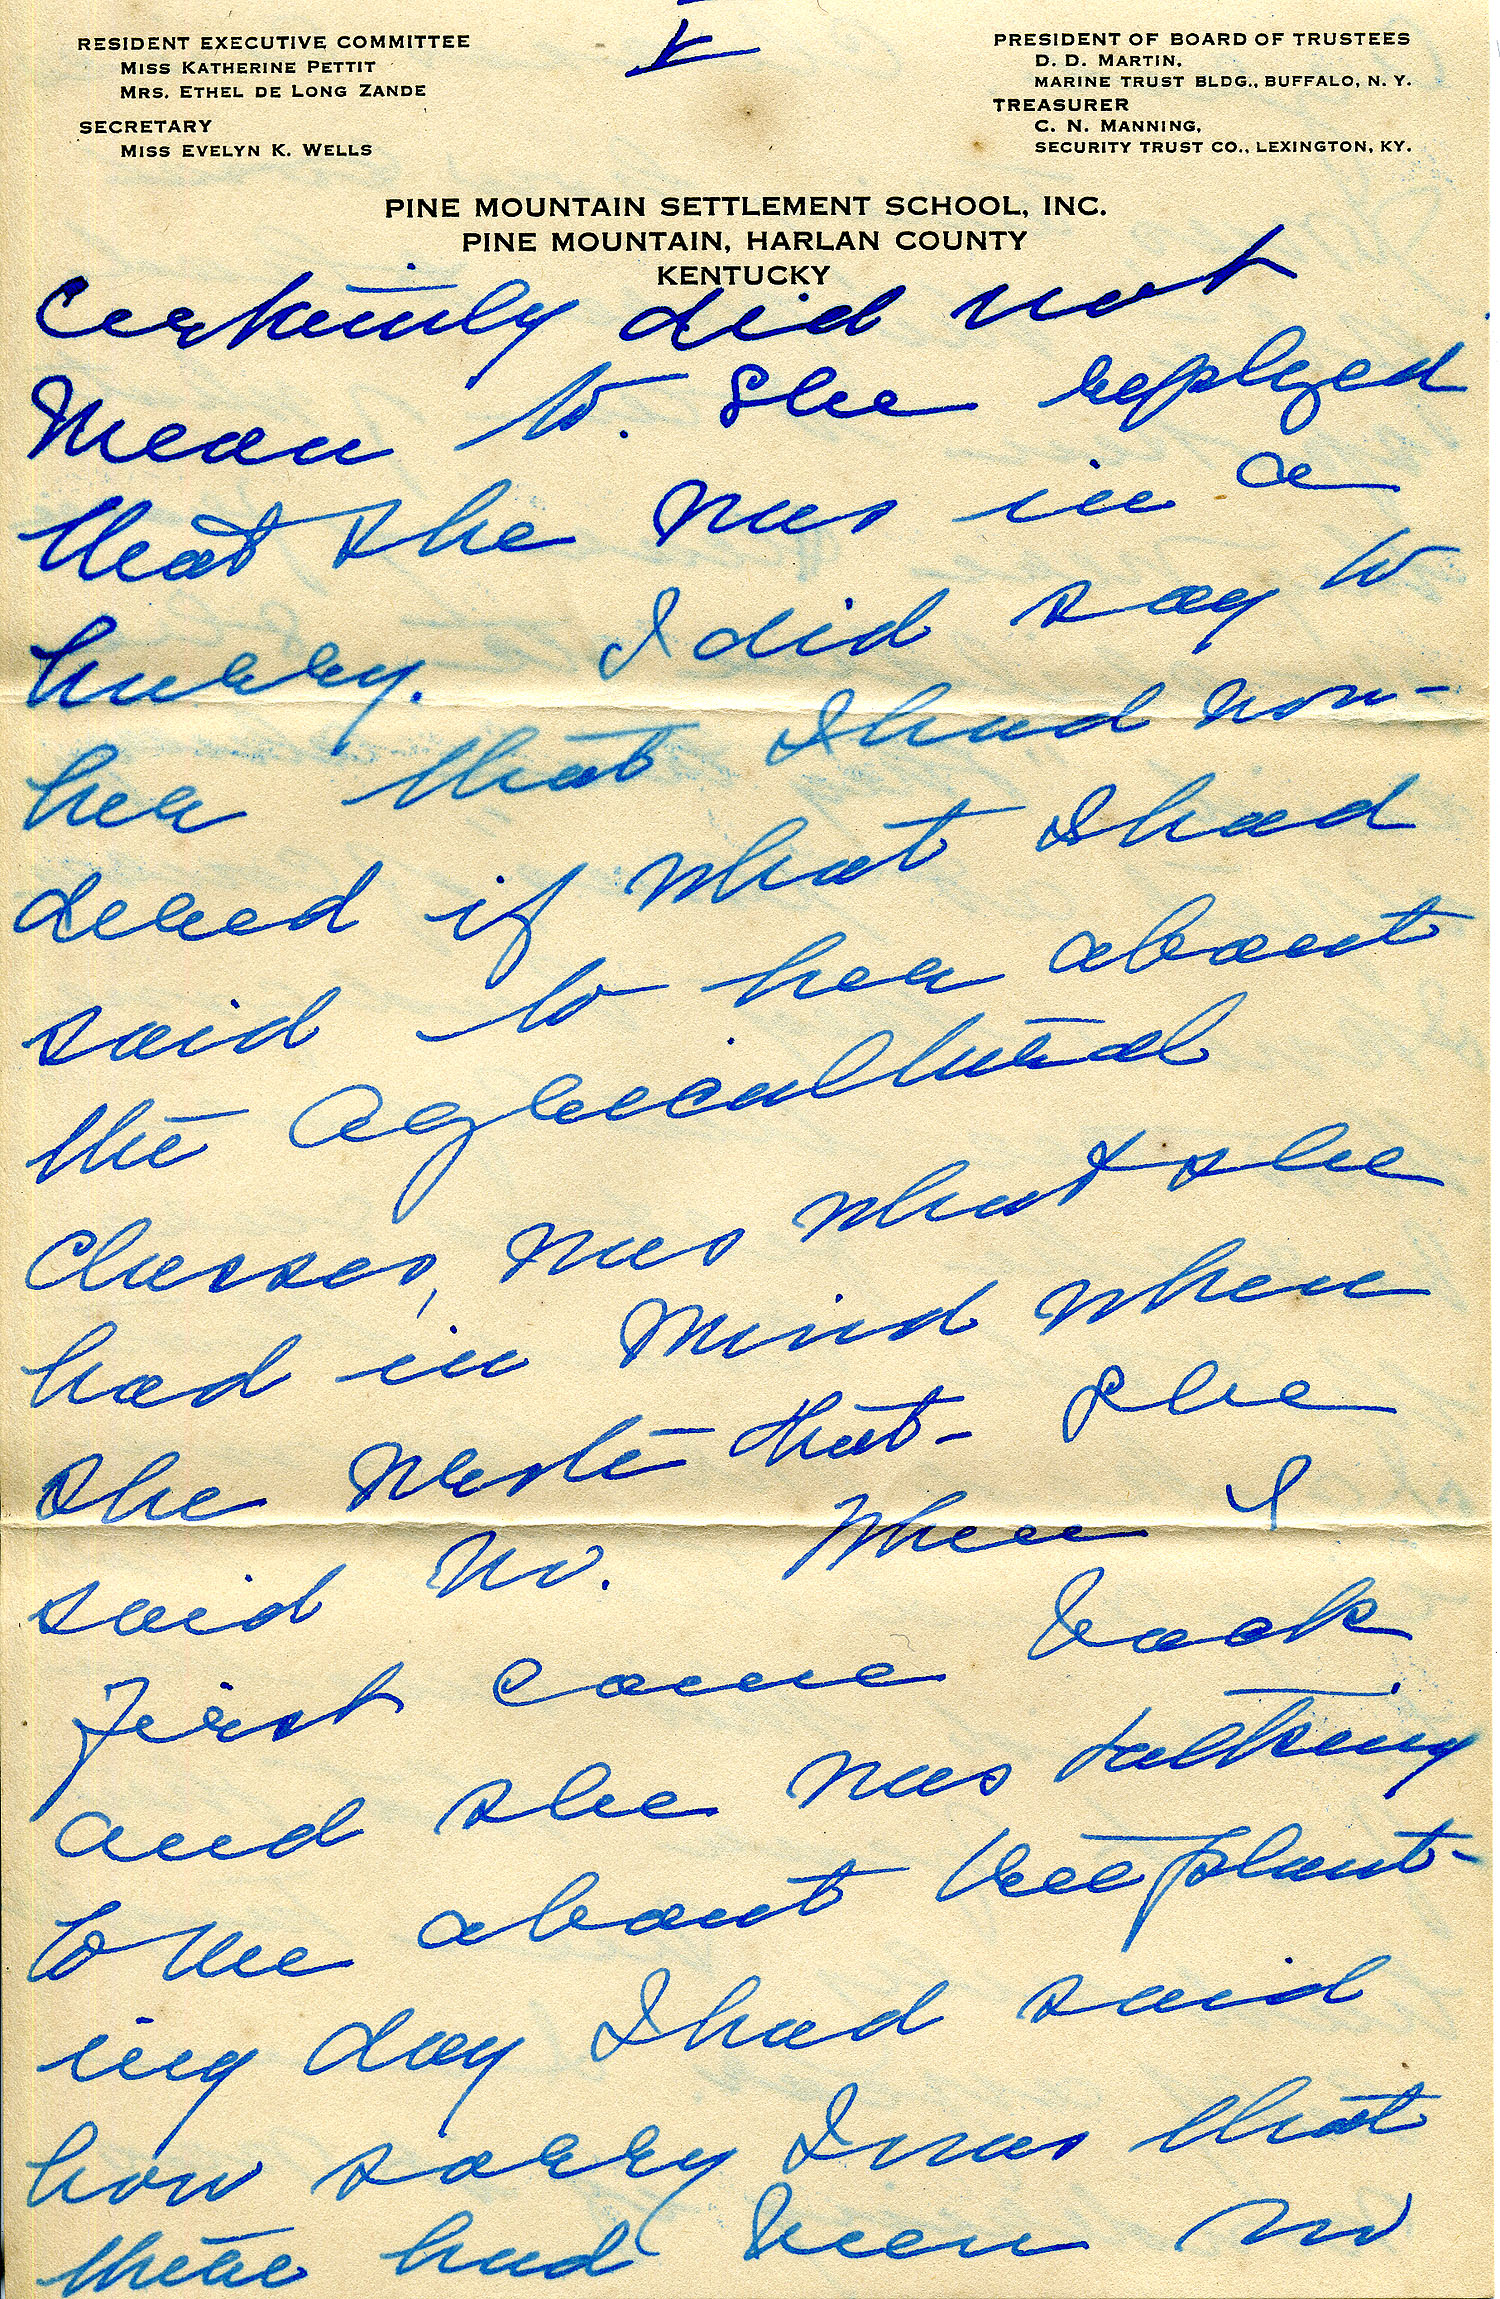 V
RESIDENT EXECUTIVE COMMITTEE
MISS KATHERINE PETTIT
MRS. ETHEL DE LONG ZANDE
SECRETARY
MISS EVELYN K. WELLS
PRESIDENT OF BOARD OF TRUSTEES
D. D. MARTIN,
MARINE TRUST BLDG., BUFFALO, N. Y.
TREASURER
C. N. MANNING,
SECURITY TRUST CO., LEXINGTON, KY.
PINE MOUNTAIN SETTLEMENT SCHOOL, INC.
PINE MOUNTAIN, HARLAN COUNTY
KENTUCKY
Certainly did not
mean to. She replyed
that she was in a
hurry. I did say to
her that I had won-
dered if what I had
said to her about
the agricultural
classes, was what she
had in mind when
she wrote that- She
said no. When I
first came back
and she was talking
to me about tree plant-
ing day I had said
how sorry I was that
there had been no